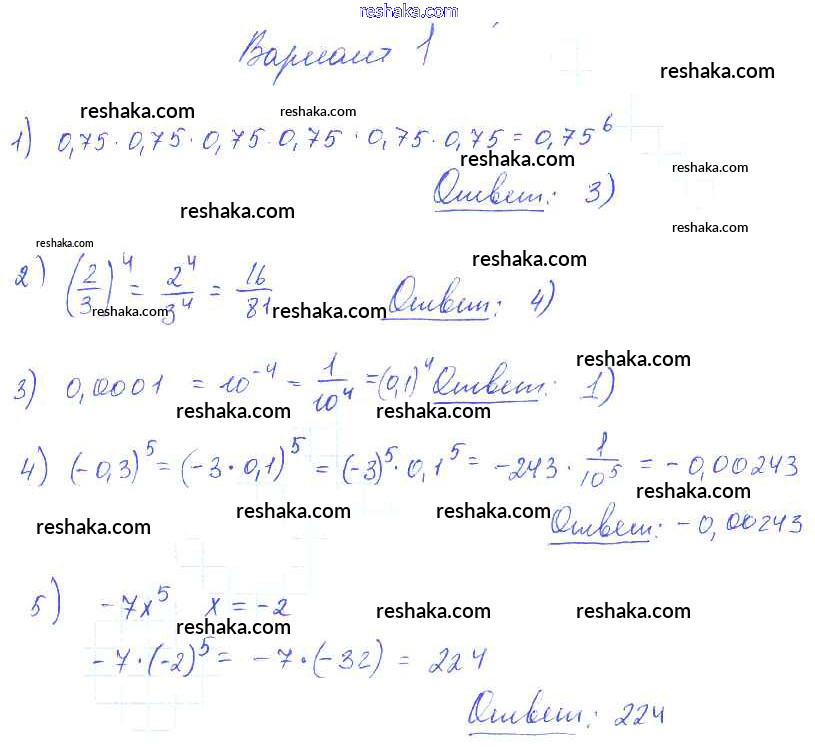 reshaka.com
Вариант 1
reshaka.com
reshaka.com reshaka.com
1) 0,75 · 0,75 · 0,75 · 0,75 · 0,75 · 0,75 = 0,75⁶
reshaka.com reshaka.com
Ответ: 3)
reshaka.com reshaka.com
reshaka.com reshaka.com
2) (2/3)⁴ = 2⁴/3⁴ = 16/81 Ответ: 4)
reshaka.com reshaka.com
reshaka.com
3) 0,0001 = 10⁻⁴ = 1/10⁴ = (0,1)⁴ Ответ: 1)
reshaka.com reshaka.com
4) (-0,3)⁵ = (-3 · 0,1)⁵ = (-3)⁵ · 0,1⁵ = -243 · 1/10⁵ = -0,00243
reshaka.com
reshaka.com reshaka.com reshaka.com
Ответ: -0,00243
5) -7x⁵ x = -2
reshaka.com reshaka.com
reshaka.com
-7 · (-2)⁵ = -7 · (-32) = 224
Ответ: 224